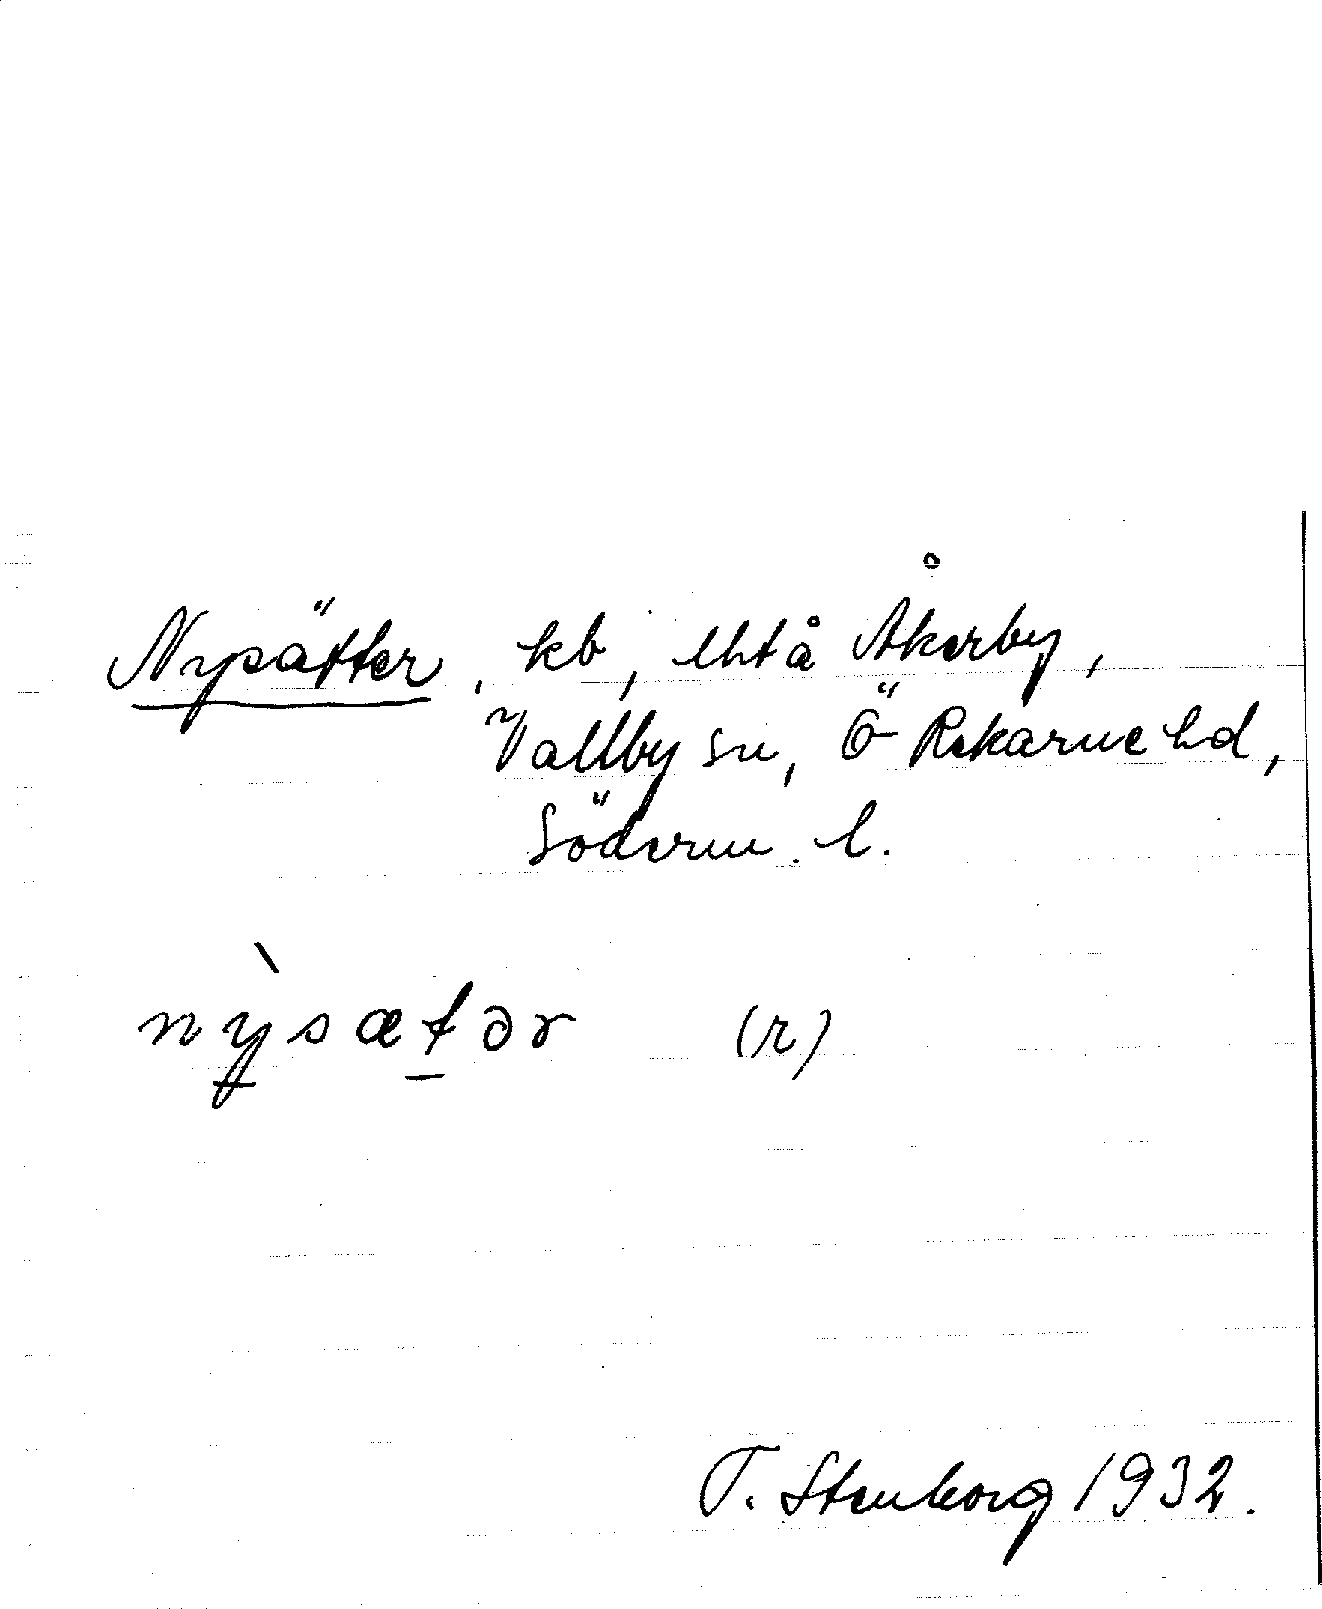 Nysätter, kb, uht å Åkerby,
Vallby sn, Ö Rekarne hd,
Söderm. l.
nỳsætər (r)
T. Stenborg 1932.